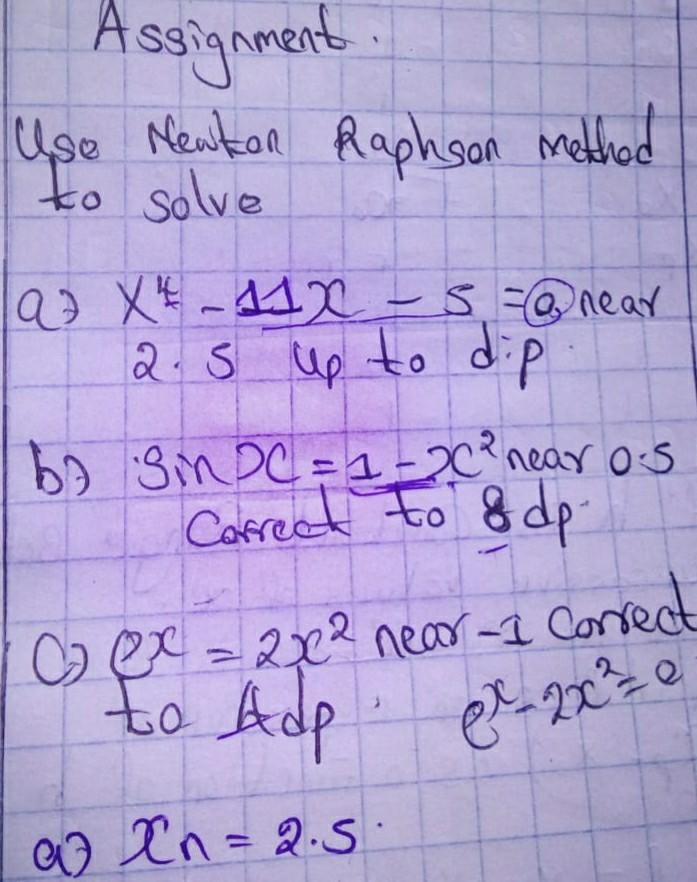 Assignment.
Use Newton Raphson method
to solve
a) x⁴ - 11x - 5 = 0, near
2.5 up to d.p.
b) Sin x = 1 - x² near 0.5
Correct to 8 dp.
C) eˣ = 2x² near -1 Correct
to 4dp. eˣ - 2x² = 0
a) xn = 2.5.